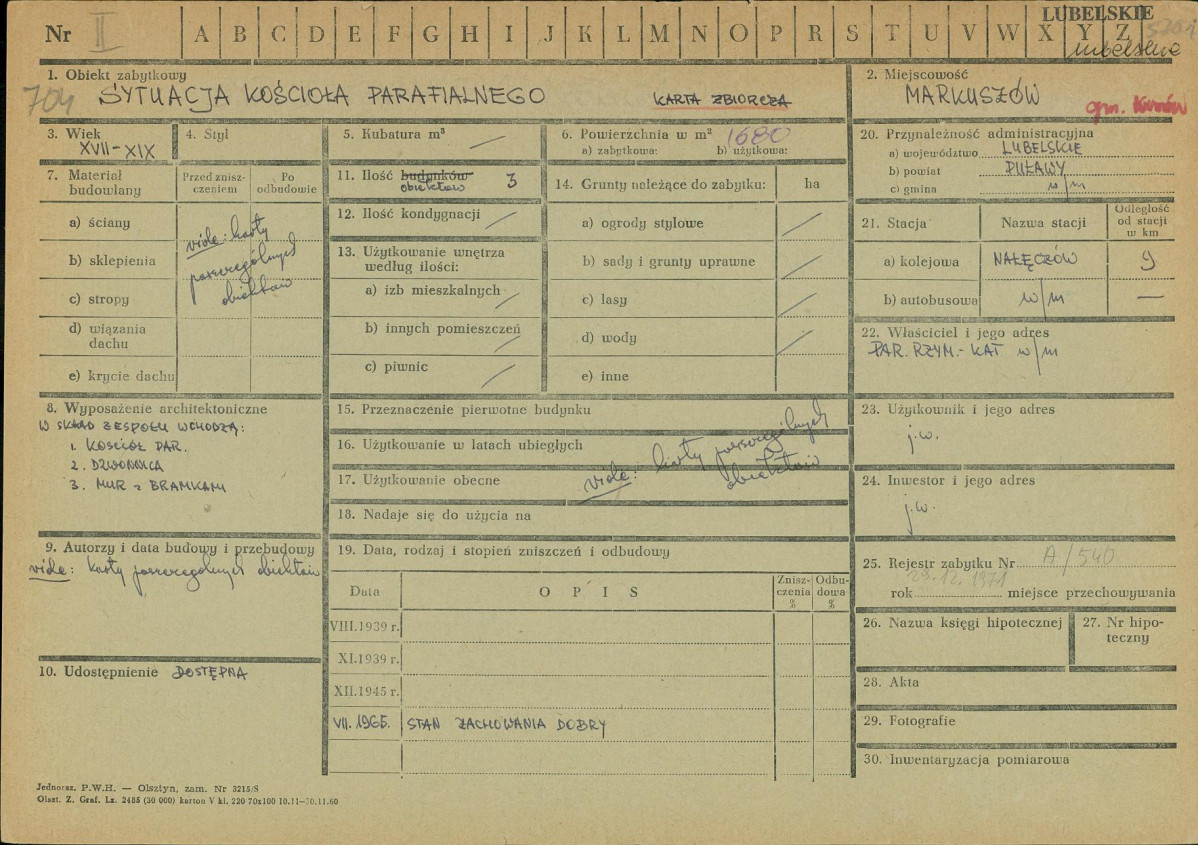 Nr II A B C D E F G H I J K L M N O P R S T U V W X Y Z
LUBELSKIE
lubelskie
1. Obiekt zabytkowy
704 SYTUACJA KOŚCIOŁA PARAFIALNEGO KARTA ZBIORCZA
2. Miejscowość
MARKUSZÓW
gm. Kurów
3. Wiek
XVII-XIX
4. Styl
5. Kubatura m³ —
6. Powierzchnia w m² 1680
a) zabytkowa: b) użytkowa:
7. Materiał budowlany
Przed zniszczeniem
Po odbudowie
a) ściany
b) sklepienia
c) stropy
d) wiązania dachu
e) krycie dachu
vide: karty
poszczególnych
obiektów
8. Wyposażenie architektoniczne
W SKŁAD ZESPOŁU WCHODZĄ:
1. KOŚCIÓŁ PAR.
2. DZWONNICA
3. MUR z BRAMKAMI
9. Autorzy i data budowy i przebudowy
vide: karty poszczególnych obiektów
10. Udostępnienie DOSTĘPNA
11. Ilość budynków
obiektów 3
12. Ilość kondygnacji /
13. Użytkowanie wnętrza
według ilości:
a) izb mieszkalnych /
b) innych pomieszczeń /
c) piwnic /
14. Grunty należące do zabytku: ha
a) ogrody stylowe /
b) sady i grunty uprawne /
c) lasy /
d) wody /
e) inne
15. Przeznaczenie pierwotne budynku
16. Użytkowanie w latach ubiegłych
17. Użytkowanie obecne
vide: karty poszczególnych
obiektów
18. Nadaje się do użycia na
19. Data, rodzaj i stopień zniszczeń i odbudowy
Data OPIS Zniszczenia % Odbudowa %
VIII.1939 r.
XI.1939 r.
XII.1945 r.
VII. 1965. STAN ZACHOWANIA DOBRY
20. Przynależność administracyjna
a) województwo LUBELSKIE
b) powiat PUŁAWY
c) gmina w/m
21. Stacja Nazwa stacji Odległość od stacji w km
a) kolejowa NAŁĘCZÓW 9
b) autobusowa w/m —
22. Właściciel i jego adres
PAR. RZYM.-KAT w/m
23. Użytkownik i jego adres
j.w.
24. Inwestor i jego adres
j.w.
25. Rejestr zabytku Nr A/540
29.12.1971
rok miejsce przechowywania
26. Nazwa księgi hipotecznej
27. Nr hipoteczny
28. Akta
29. Fotografie
30. Inwentaryzacja pomiarowa
Jednoraz. P.W.H. — Olsztyn, zam. Nr 3215/S
Olszt. Z. Graf. Lz. 2485 (30 000) karton V kl. 220 70x100 10.11—30.11.60